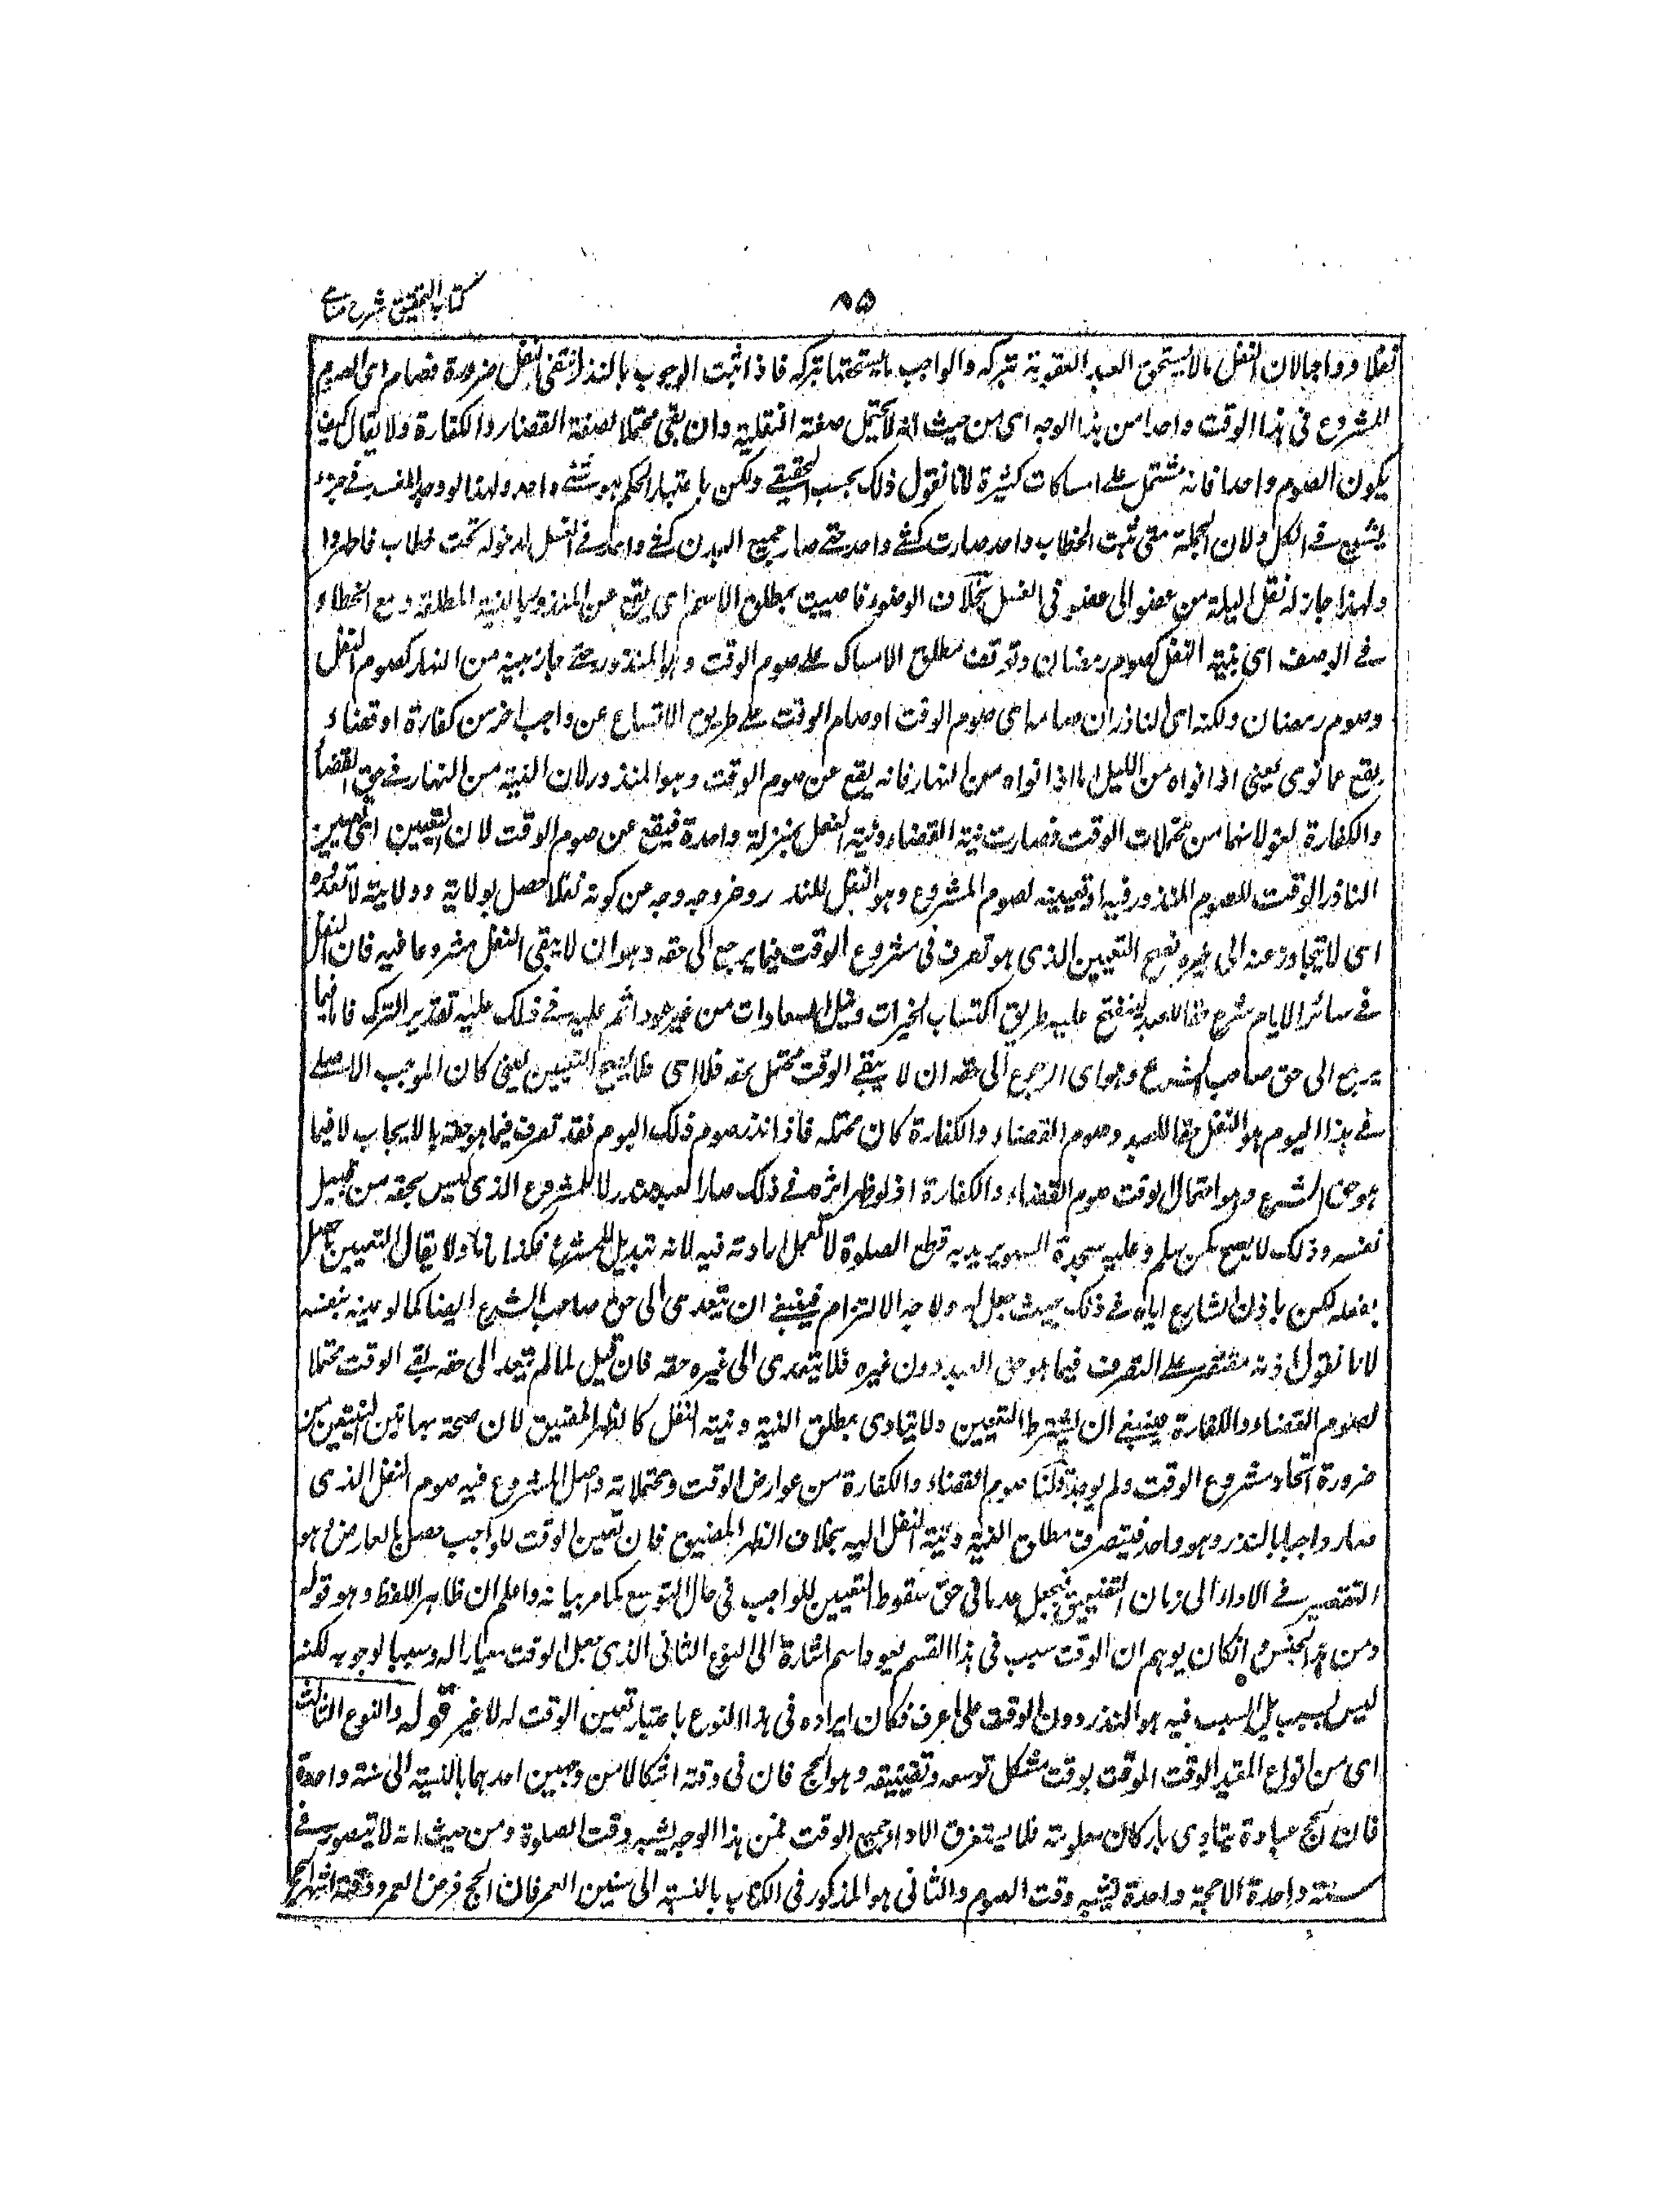 كتاب التحقيق شرح حسامی
٨٥
نفلا وواجبا لان النفل ما لا يستحق العبد العقوبة بتركه والواجب ما يستحقها بتركه فاذا ثبت الوجوب بالنذر انتفى النفل ضرورة فصام اى الصوم
المشروع فى هذا الوقت واحدا من هذا الوجه اى من حيث انه لا يحتمل صفة النفلية وان بقى محتملا لصفة القضاء والكفارة ولا يقال كيف
يكون الصوم واحدا فانه مشتمل على امساكات كثيرة لانا نقول ذلك بحسب الحقيقة ولكن باعتبار الحكم هو شئ واحد ولهذا لو وجد المفسد فى جزء
يشيع فى الكل ولان الجملة متى تحت الخطاب واحد صارت كشئ واحد حتى صار جميع البدن كشئ واحد فى الغسل لدخوله تحت خطاب فاطهروا
ولهذا جاز له نقل البلة من عضو الى عضو فى الغسل بخلاف الوضوء فاصيب بمطلق الاسم اى يقع عن المنذور بالنية المطلقة ومع الخطاء
فى الوصف اى بنية النفل كصوم رمضان وتوقف مطلق الامساك على صوم الوقت وهو المنذور حتى جاز نيته من النهار كصوم النفل
وصوم رمضان ولكنه اى الناذر ان صامه اى صوم الوقت او صام الوقت على طريق الاتساع عن واجب اخر من كفارة او قضاء
يقع عما نوى يعنى اذا نواه من الليل اما اذا نواه من النهار فانه يقع عن صوم الوقت وهو المنذور لان النية من النهار فى حق القضاء
والكفارة لغو لانهما من محتملات الوقت فصارت نية القضاء ونية النفل بمنزلة واحدة فيقع عن صوم الوقت لان التعيين اى تعيين
الناذر الوقت للصوم المنذور فيه او تعيينه لصوم المشروع وهو النفل للنذر وخروجه وجه من كونه نفلا حصل بولاية وولايته لا تعدوه
اى لا يتجاوز عنه الى غيره فصح التعيين الذى هو تصرف فى مشروع الوقت فيما يرجع الى حقه وهو ان لا يبقى النفل مشروعا فيه فان النفل
فى سائر الايام شرع حقا للعبد لينفتح عليه طريق اكتساب الخيرات ونيل السعادات من غير عود اثم عليه فى ذلك عليه تقدير الترك فاما فيما
يرجع الى حق صاحب الشرع وهو اى الرجوع الى حقه ان لا يبقى الوقت محتمل حقه فلا اى فلا يصح التعيين يعنى كان الموجب الاصلى
فى هذا اليوم هو النفل حقا للعبد وصوم القضاء والكفارة كان محتمله فاذا نذر صوم ذلك اليوم فقد تصرف فيما هو حقه بالايجاب لا فيما
هو حق الشرع وهو احتمال الوقت صوم القضاء والكفارة اذ لو ظهر اثره فى ذلك صار العبد مبدلا للمشروع الذى ليس بحقه من قبل
نفسه وذلك لا يصح كمن سلم وعليه سجدة السهو يريد به قطع الصلوة لا تعمل ارادته فيه لانه تبديل للمشروع فكذا هذا ولا يقال التعيين حصل
بفعله لكن باذن الشارع اياه فى ذلك حيث جعل له ولاية الالتزام فينبغى ان يتعدى الى حق صاحب الشرع ايضا كما لو عينه بنفسه
لانا نقول اذنه مقتصر على التصرف فيما هو حق العبد دون غيره فلا يتعدى الى غيره حقه فان قيل لما لم يتعد الى حقه بقى الوقت محتملا
لصوم القضاء والكفارة فينبغى ان يشترط التعيين ولا يتادى بمطلق النية ونية النفل كالظهر المضيق لان صحته بهاتين النيتين من
ضرورة اتحاد مشروع الوقت ولم يوجد قلنا صوم القضاء والكفارة من عوارض الوقت ومحتملاته واصل المشروع فيه صوم النفل الذى
صار واجبا بالنذر وهو واحد فيتصرف مطلق النية ونية النفل اليه بخلاف الظهر المضيق فان تعين الوقت للواجب حصل بالعارض وهو
التقصير فى الاداء الى زمان التضييق فجعل عدما فى حق سقوط التعيين للواجب فى حال التوسع كما مر بيانه واعلم ان ظاهر اللفظ وهو قوله
ومن هذا الجنس ان كان يوهم ان الوقت سبب فى هذا القسم بعود اسم اشارة الى النوع الثانى الذى جعل الوقت معيارا له وسببا لوجوبه لكنه
ليس بسبب بل السبب فيه هو النذر دون الوقت على ما عرف فكان ايراده فى هذا النوع باعتبار تعين الوقت له لا غير قوله والنوع الثالث
اى من انواع المقيد الوقت الموقت بوقت مشكل توسعه وتضييقه وهو الحج فان فى وقته اشكالا من وجهين احدهما بالنسبة الى سنة واحدة
فان الحج عبادة يتادى باركان معلومة فلا يستغرق الاداء جميع الوقت فمن هذا الوجه يشبه وقت الصلوة ومن حيث انه لا يتصور فى
سنة واحدة الا حجة واحدة يشبه وقت الصوم والثانى هو المذكور فى الكتاب بالنسبة الى سنين العمر فان الحج فرض العمر ووقته اشهر الحج